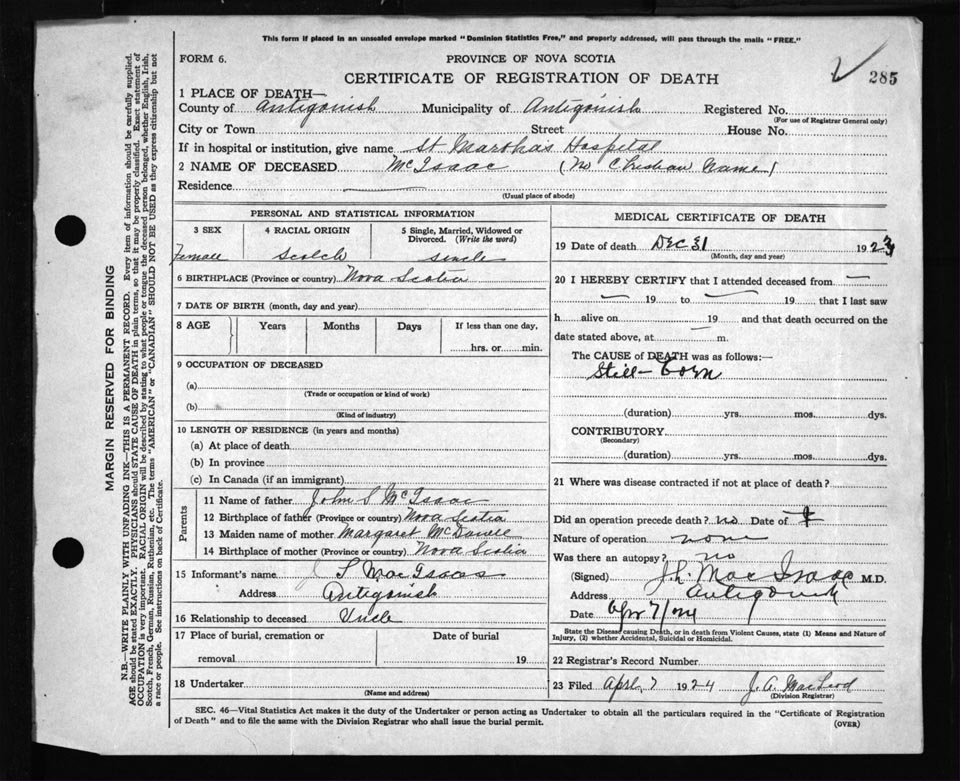 This form if placed in an unsealed envelope marked "Dominion Statistics Free," and properly addressed, will pass through the mails "FREE."
FORM 6.
PROVINCE OF NOVA SCOTIA
CERTIFICATE OF REGISTRATION OF DEATH
285
1 PLACE OF DEATH—
County of Antigonish Municipality of Antigonish Registered No.
(For use of Registrar General only)
City or Town Street House No.
If in hospital or institution, give name St Martha's Hospital
2 NAME OF DECEASED McIsaac (no Christian Name)
Residence
(Usual place of abode)
PERSONAL AND STATISTICAL INFORMATION
3 SEX 4 RACIAL ORIGIN 5 Single, Married, Widowed or Divorced. (Write the word)
Female Scotch Single
6 BIRTHPLACE (Province or country) Nova Scotia
7 DATE OF BIRTH (month, day and year)
8 AGE Years Months Days If less than one day,
hrs. or min.
9 OCCUPATION OF DECEASED
(a)
(Trade or occupation or kind of work)
(b)
(Kind of industry)
10 LENGTH OF RESIDENCE (in years and months)
(a) At place of death
(b) In province
(c) In Canada (if an immigrant)
Parents
11 Name of father John S McIsaac
12 Birthplace of father (Province or country) Nova Scotia
13 Maiden name of mother Margaret
14 Birthplace of mother (Province or country) Nova Scotia
15 Informant's name S MacIsaac
Address Antigonish
16 Relationship to deceased Uncle
17 Place of burial, cremation or Date of burial
removal 19
18 Undertaker
(Name and address)
MEDICAL CERTIFICATE OF DEATH
19 Date of death Dec 31 1923
(Month, day and year)
20 I HEREBY CERTIFY that I attended deceased from —
— 19 to — 19 that I last saw
h alive on 19 and that death occurred on the
date stated above, at — m.
The CAUSE of DEATH was as follows:—
Still-born
(duration) yrs. mos. dys.
CONTRIBUTORY
(Secondary)
(duration) yrs. mos. dys.
21 Where was disease contracted if not at place of death?
Did an operation precede death? no Date of
Nature of operation none
Was there an autopsy? no
(Signed) J. L. MacIsaac M.D.
Address Antigonish
Date Apr 7/24
State the Disease causing Death, or in death from Violent Causes, state (1) Means and Nature of
Injury, (2) whether Accidental, Suicidal or Homicidal.
22 Registrar's Record Number
23 Filed April 7 1924 J. A. MacLeod
(Division Registrar)
SEC. 46—Vital Statistics Act makes it the duty of the Undertaker or person acting as Undertaker to obtain all the particulars required in the "Certificate of Registration
of Death" and to file the same with the Division Registrar who shall issue the burial permit.
(OVER)
MARGIN RESERVED FOR BINDING
N.B.—WRITE PLAINLY WITH UNFADING INK—THIS IS A PERMANENT RECORD. Every item of information should be carefully supplied.
AGE should be stated EXACTLY. PHYSICIANS should STATE CAUSE OF DEATH in plain terms, so that it may be properly classified. Exact statement of
OCCUPATION is very important. RACIAL ORIGIN will be described by stating to what people or tongue the deceased person belonged, whether English, Irish,
Scotch, French, German, Russian, Ruthenian, etc. The terms "AMERICAN" or "CANADIAN" SHOULD NOT BE USED as they express citizenship but not
a race or people. See instructions on back of Certificate.